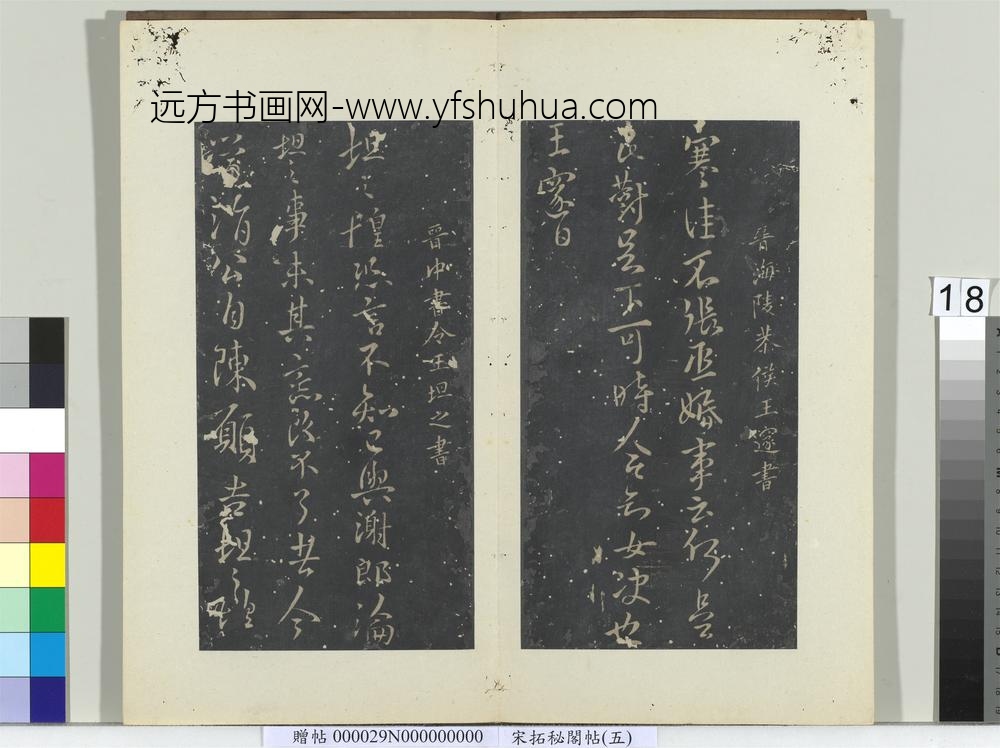 远方书画网-www.yfshuhua.com
晉海陵恭侯王邃書
寒佳不張丞婚事云何吾
甚鬱足下可時人令知女決也
王邃白
晉中書令王坦之書
坦之惶恐言不知已與謝郎論
坦之事未其意改不了其今
謹詣公自陳願吉坦之惶
18
贈帖 000029N000000000 宋拓秘閣帖(五)